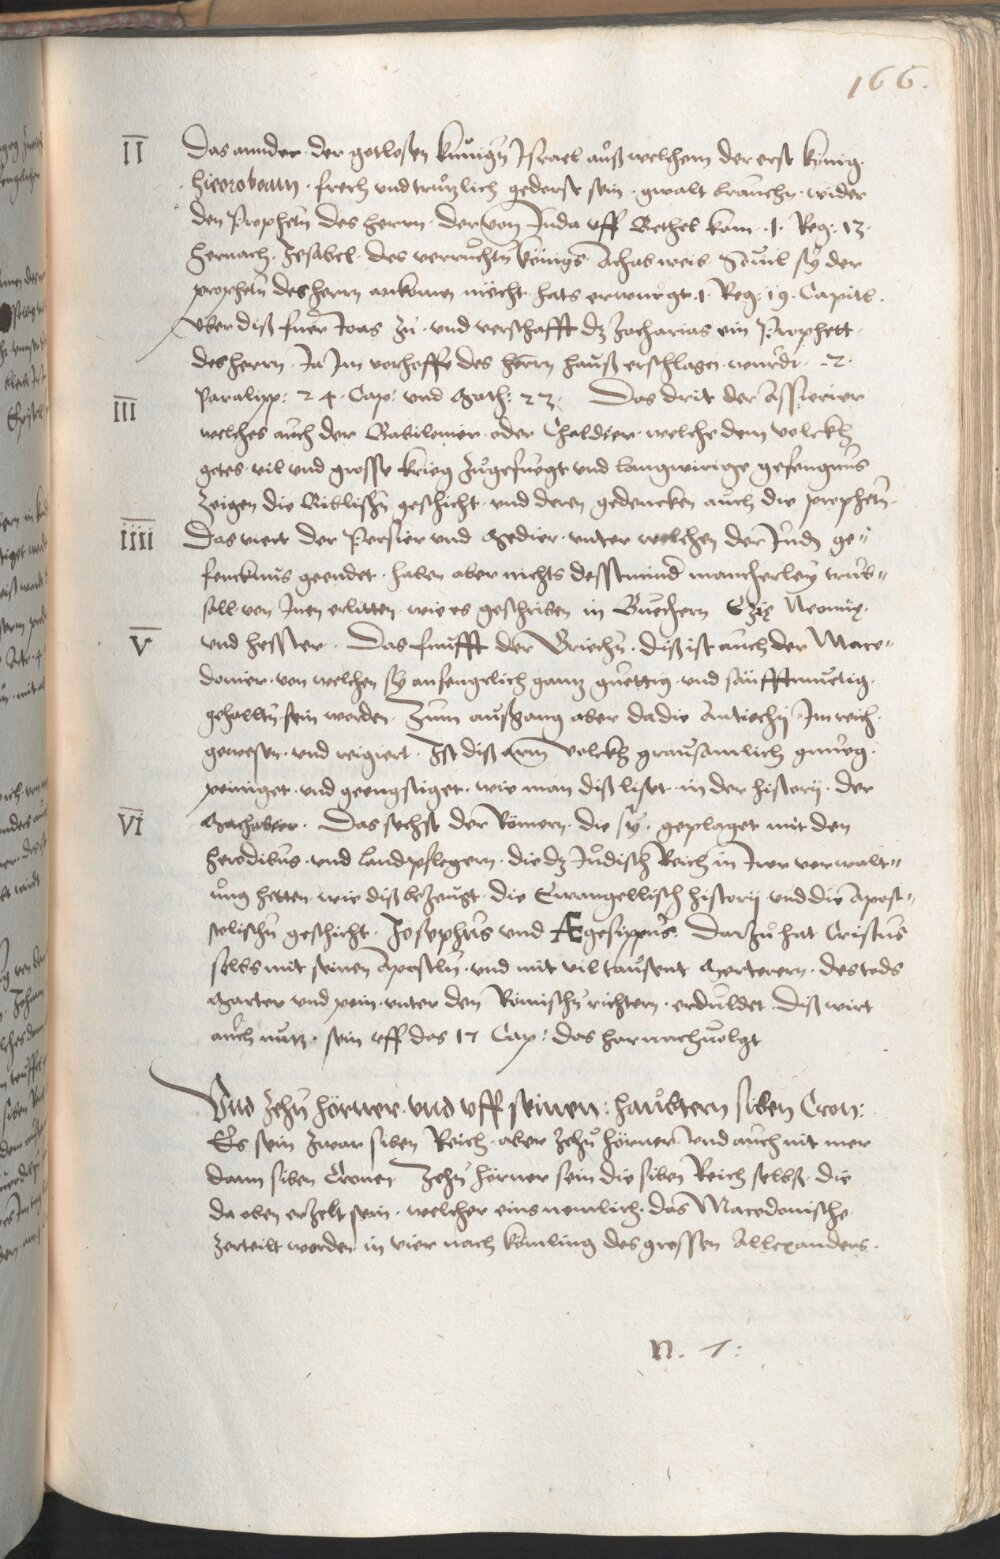 166.
II Das annder der gotlosen künign Israel auß welchem der erst künig.
Hieoroboam. frech und trutzlich gederst sein. gwalt brauchn. wider
den Prophetn des herrn. der von Juda uff Bethel kam. 1. Reg: 13.
hernach. Jesabel. des verruchtn königs Achab weib Souil sy der
prophetn des herrn ankomen mocht. hats erwurgt. 1 Reg: 19. Capitl.
Uber diß fuer Joas zu. und verschafft dz Zacharias ein Prophett
des herrn. Ja Im vorhoffe des herrn hauß erschlagen wurde. 2.
III Paralipp: 24. Cap: und Math: 23. Das drit der Assirier
welches auch der Babilonier oder Chaldeer. welche dem volckh
gotes vil und grosse krieg zugefuegt und langwirige gefengnus
zeigen die Biblischn geschicht. und deren gedencken auch die prophetn.
IIII Das viert der Persier und Medier. unter welchen der Judn ge„
fencknus geendet. haben aber nichts desstminder mancherley trüb„
sall von Inen erlitten. wie es geschriben in Büechern Ezrę Neemię.
V und Hesster. Das fünfft der Griechn. diß ist auch der Mace„
donier. von welchen sy anfengclich gantz guettig. und sanfftmuetig.
gehalltn sein worden. Zum außgang aber da die Antiochij Im reich.
gewesen. und reigiert. Ist diß arm volckh grausamlich gnueg.
peiniget. und geengstiget. wie man diß liset in der history. der
VI Machabeer. Das sechst der Römern. die sy. geplaget mit den
Herodibus. und landpflegern. die dz Jüdisch Reich in Irer verwalt„
ung hetten wie diß bezeugt. die Evangellisch history und die Apost„
tolischn geschicht. Josephus und Ægesippus. Darzu hat Cristus
selbs mit seinen Apostln. und mit vil tausent Marterern. des tods
Marter und pein. unter den Römischn richtern. erduldet. diß wirt
auch nutz. sein uff das 17 Cap: das hernachvolgt
Und zehn hörner. und uff seinen: haubtern siben Cron:
Es sein zwar siben Reich. aber zehn hörner und auch nit mer
dann siben Cronen Zehn hörner sein die siben Reich selbs. die
da oben erzelt sein. welcher eins nemlich. das Macedonische.
zerteilt worden in vier nach komling des grossen Allexanders.
n. 1: